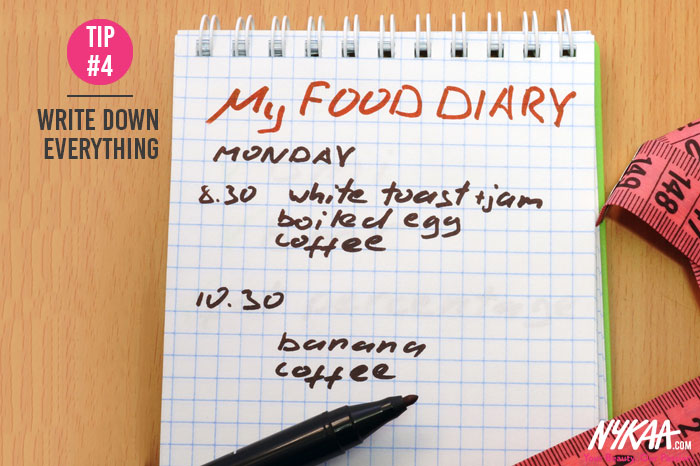 TIP
#4
WRITE DOWN
EVERYTHING
My FOOD DIARY
MONDAY
8.30 white toast + jam
boiled egg
coffee
10.30
banana
coffee
149
148
147
NYKAA.COM